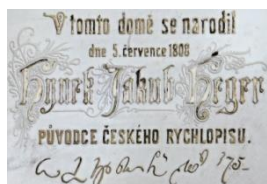 V tomto domě se narodil
dne 5. července 1808
Hynek Jakub Heger
PŮVODCE ČESKÉHO RYCHLOPISU.